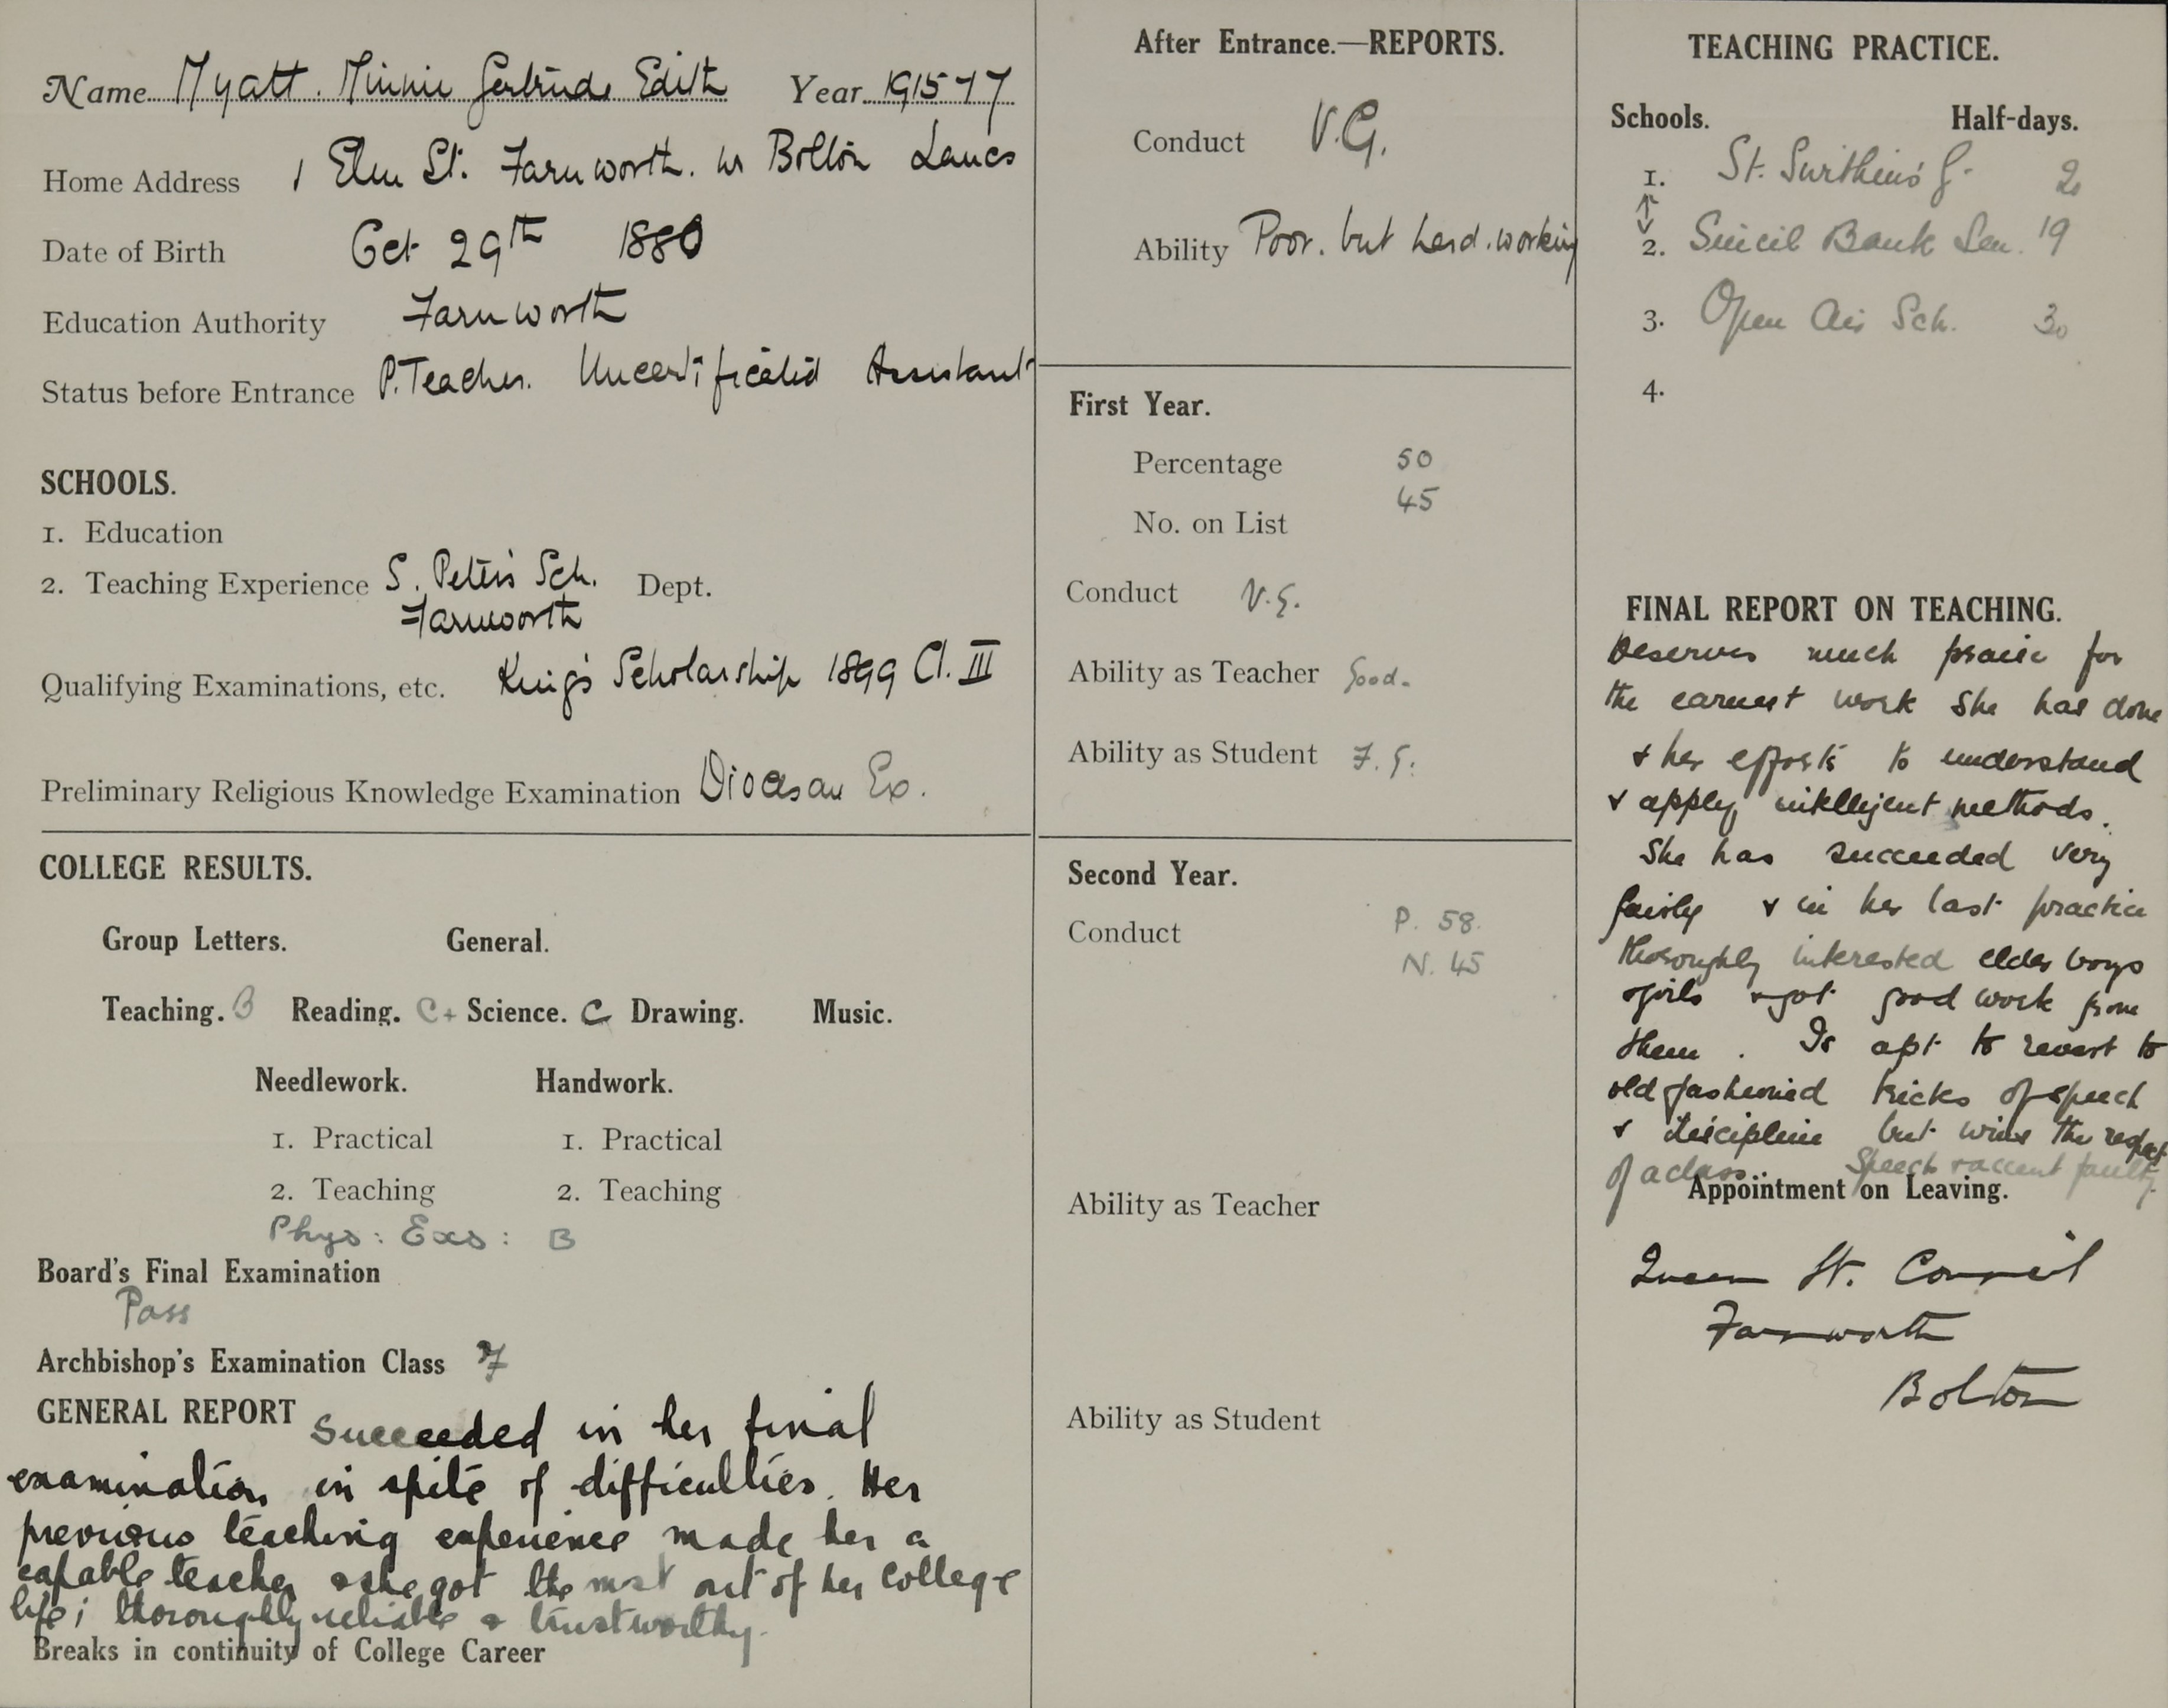 Name Myatt. Minnie Gertrude Edith Year 1915-17
Home Address 1 Elm St. Farnworth. nr Bolton Lancs
Date of Birth Oct 29th 1880
Education Authority Farnworth
Status before Entrance P. Teacher. Uncertificated Assistant
SCHOOLS.
1. Education
2. Teaching Experience S. Peter's Sch. Dept.
Farnworth
Qualifying Examinations, etc. King's Scholarship 1899 Cl. III
Preliminary Religious Knowledge Examination Diocesan Ex.
COLLEGE RESULTS.
Group Letters. General.
Teaching. B Reading. C+ Science. C Drawing. Music.
Needlework. Handwork.
1. Practical 1. Practical
2. Teaching 2. Teaching
Phys: Exs: B
Board's Final Examination
Pass
Archbishop's Examination Class
GENERAL REPORT Succeeded in her final
examination in spite of difficulties. Her
previous teaching experience made her a
capable teacher & she got the most out of her College
life; thoroughly reliable & trustworthy.
Breaks in continuity of College Career
After Entrance.—REPORTS.
Conduct V.G.
Ability Poor. but hard.working
First Year.
Percentage 50
45
No. on List
Conduct V.G.
Ability as Teacher Good.
Ability as Student F.G.
Second Year.
Conduct P. 58.
N. 45
Ability as Teacher
Ability as Student
TEACHING PRACTICE.
Schools. Half-days.
1. St. Swithin's G. 20
2. Sincil Bank Sen. 19
3. Open Air Sch. 30
4.
FINAL REPORT ON TEACHING.
Deserves much praise for
the earnest work she has done
& her efforts to understand
& apply intelligent methods.
She has succeeded very
fairly & in her last practice
thoroughly interested elder boys
& girls & got good work from
them. Is apt to revert to
old fashioned tricks of speech
& discipline but wins the respect
of a class. Speech & accent faulty.
Appointment on Leaving.
Queen St. Council
Farnworth
Bolton